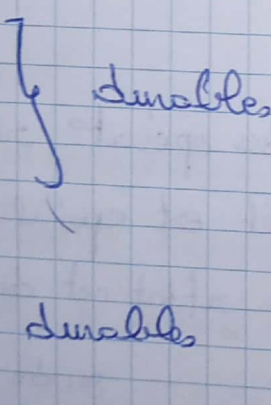 durables
durables